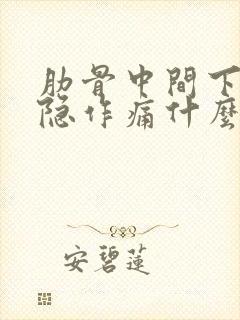 肋骨中間下
隐作痛什麼
安碧蓮